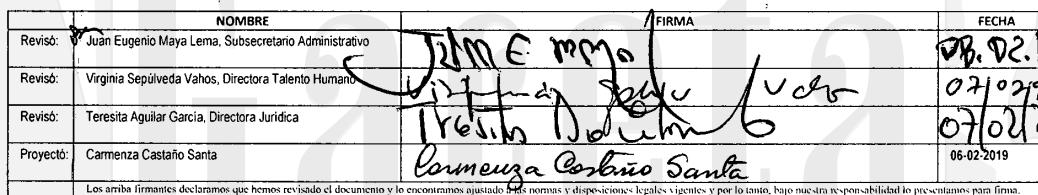 NOMBRE FIRMA FECHA
Revisó: Juan Eugenio Maya Lema, Subsecretario Administrativo JUAN E MAYA 08.02.
Revisó: Virginia Sepúlveda Vahos, Directora Talento Humano 07/02/
Revisó: Teresita Aguilar García, Directora Jurídica 07/02/
Proyectó: Carmenza Castaño Santa Carmenza Castaño Santa 06-02-2019
Los arriba firmantes declaramos que hemos revisado el documento y lo encontramos ajustado a las normas y disposiciones legales vigentes y por lo tanto, bajo nuestra responsabilidad lo presentamos para firma.